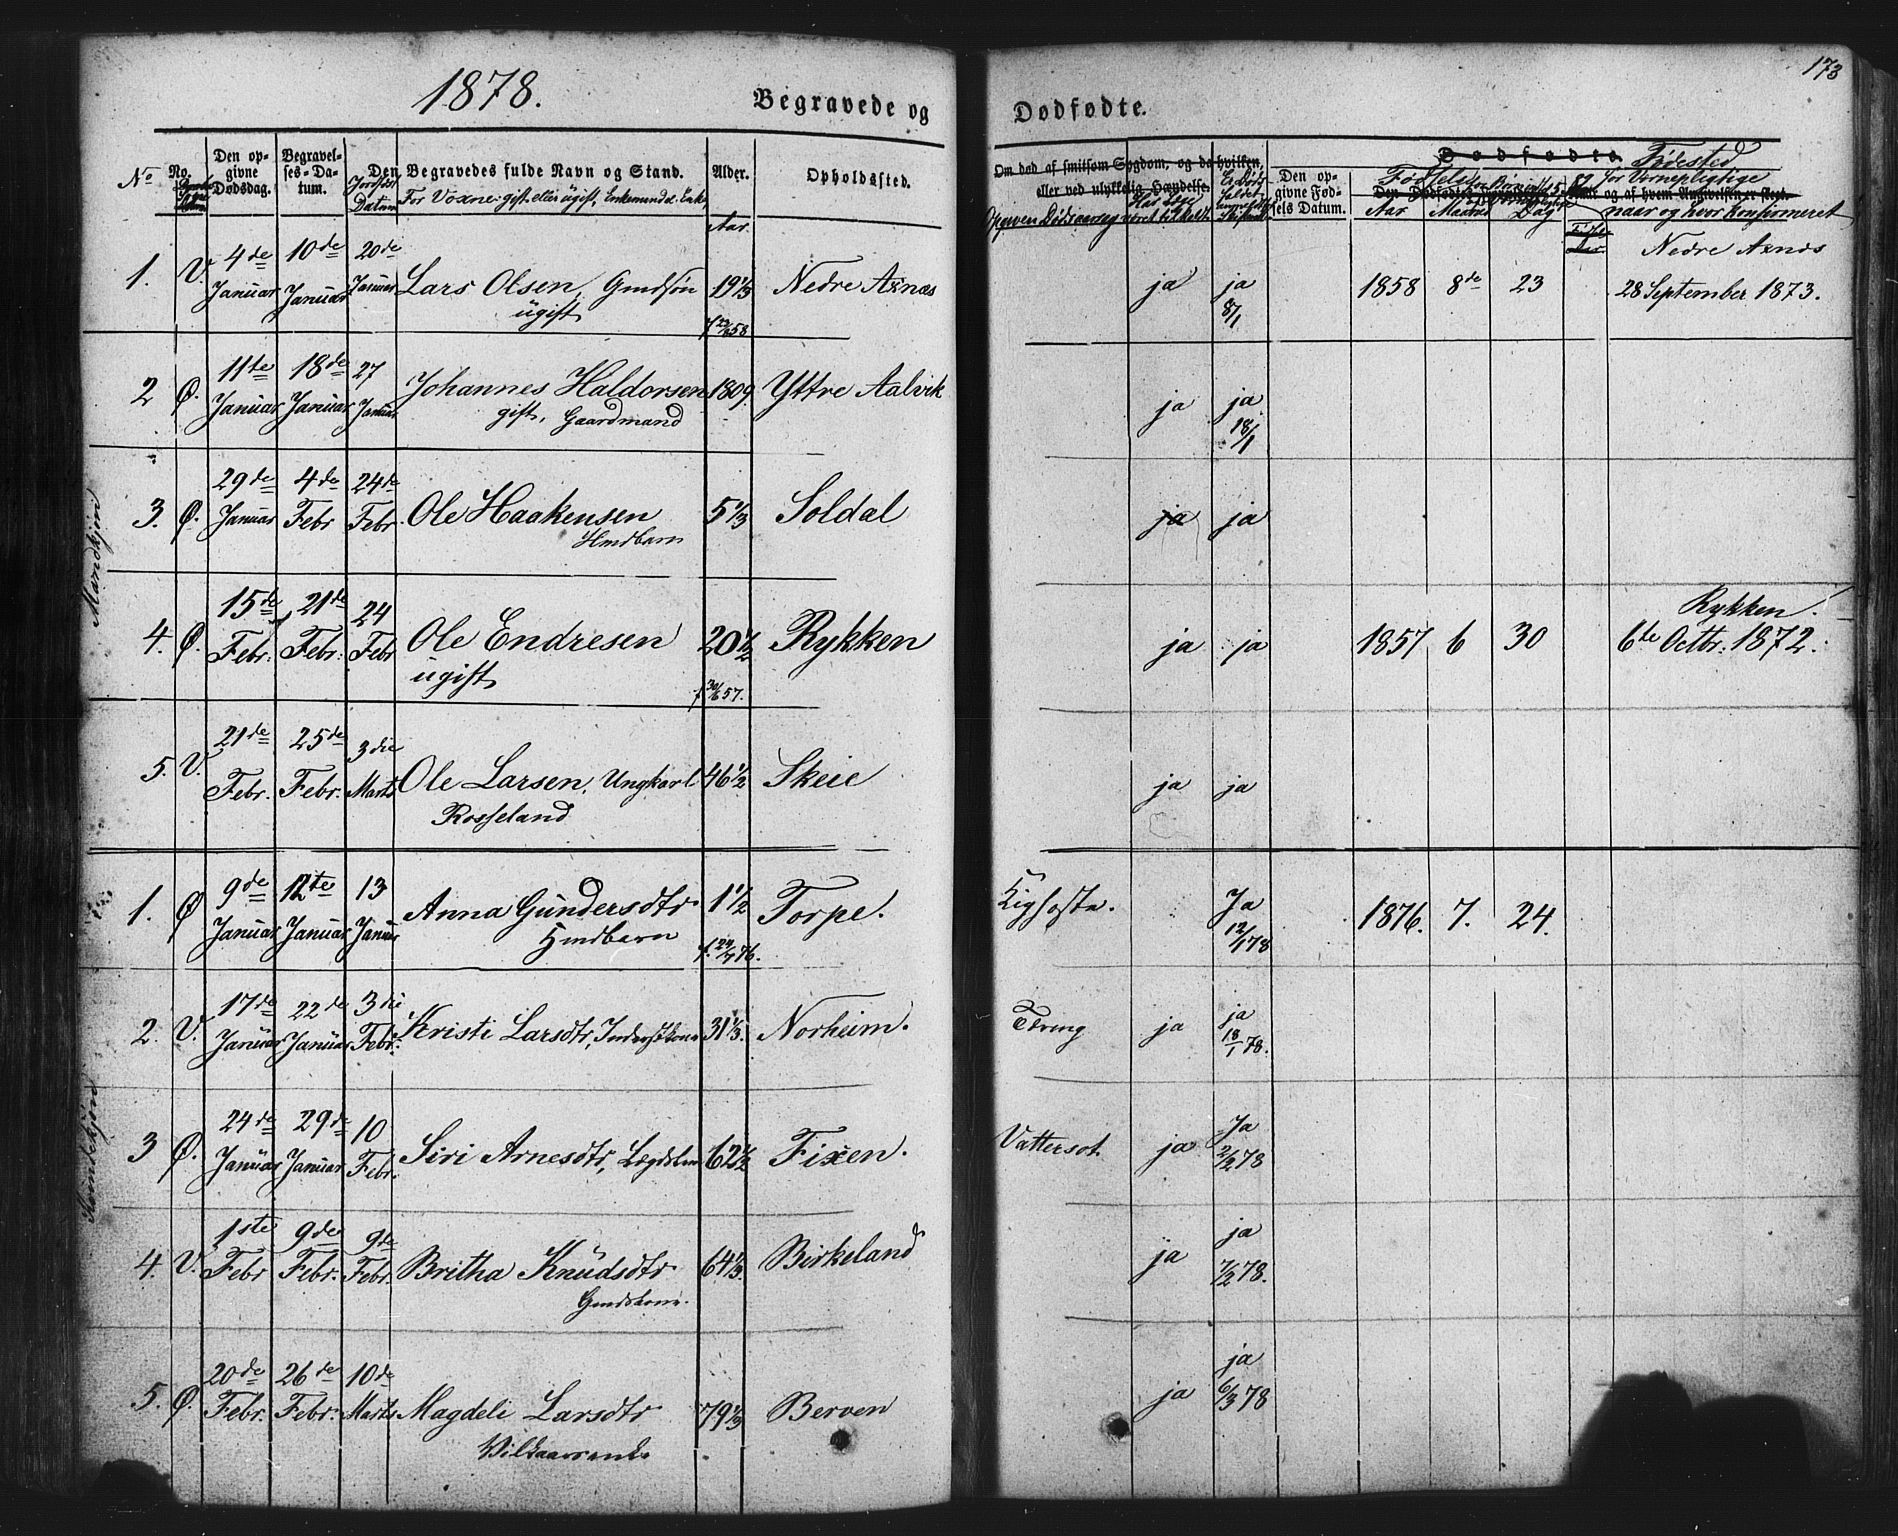 1878.
Begravede og
Dødfødte.
173
No
No.
Den opgivne Dødsdag.
Begravelses-Datum.
Den Jordfæst Datum
Den Begravedes fulde Navn og Stand.
For Voxne: gift eller ugift, Enkemand el. Enke,
Alder.
Opholdssted.
Om død af smitsom Sygdom, og da hvilken,
eller ved ulykkelig Hændelse.
Opgiven Dødsaarsag
Har Læge
været tilkaldt
Den opgivne Fødsels Datum.
Dødfødte.
Fødested
Fødsels
for Vernepligtige
og af hvem Angivelsen er sleet.
Aar Maaned Dag
naar og hvor Konfirmeret
Aar
Mandkjøn
1. V. 4de Januar 10de Januar 20de Januar Lars Olsen, Gmdsøn 19 1/3 Nedre Axnæs
ugift
f 23/8 58
ja ja 8/1 1858 8de 23 Nedre Axnæs
28 September 1873.
2 Ø. 11te Januar 18de Januar 27 Januar Johannes Haldorsen 1809. Yttre Aalvik
gift, Gaardmand
ja ja 18/1
3. Ø. 29de Januar 4de Febr 24de Febr. Ole Haakensen 5 1/3 Soldal
Hmdbarn
ja ja
4. Ø. 15de Febr. 21de Febr. 24 Febr Ole Endresen 20 1/2 Rykken
ugift
f 30/6 57.
ja ja 1857 6 30 Rykken.
6te Octbr. 1872.
5. V. 21de Febr. 25de Febr. 3die Marts Ole Larsen, Ungkarl 46 1/2 Skeie
Rosseland
ja ja
Kvindekjøn
1. Ø 9de Januar 12te Januar 13 Januar Anna Gundersdtr 1 1/2 Torpe.
Gmdbarn
f. 24/7 76.
Kighoste. Ja 12/1 78 1876. 7. 24.
2. V. 17de Januar 22de Januar 3die Febr. Kristi Larsdtr, Inderstkone 31 1/3. Norheim.
Tæring ja ja 18/1 78.
3 Ø. 24de Januar 29de Januar 10 Febr. Siri Arnesdtr, Lægdslem 62 1/2 Fixen.
Vattersot. ja Ja 2/2 78
4. V. 1ste Febr 9de Febr. 9de Febr. Britha Knudsdtr 64 1/3. Birkeland
Gmdskone.
ja ja 7/2 78.
5. Ø. 20de Febr. 26de Febr. 10de Marts Magdeli Larsdtr 79 1/3 Berven
Vilkaarsenke
ja ja 6/3 78